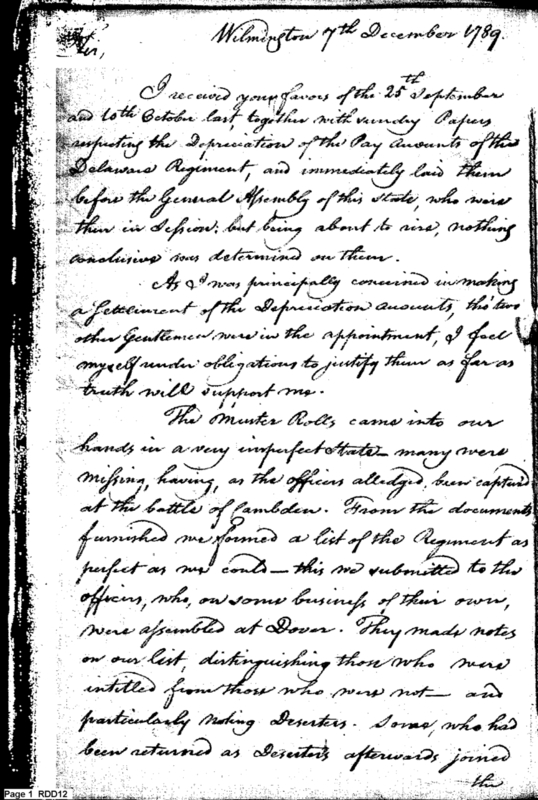 Wilmington 7th December 1789.
Sir,
I received your favors of the 25th September
and 10th October last, together with sundry Papers
respecting the Depreciation of the Pay Accounts of the
Delaware Regiment, and immediately laid them
before the General Assembly of this State, who were
then in Session; but being about to rise, nothing
conclusive was determined on them.
As I was principally concerned in making
a Settlement of the Depreciation accounts, tho' two
other Gentlemen were in the appointment, I feel
myself under obligations to justify them as far as
truth will support me.
The Muster Rolls came into our
hands in a very imperfect State — many were
missing, having, as the officers alledged, been captured
at the battle of Cambden. From the documents
furnished we formed a list of the Regiment as
perfect as we could — this we submitted to the
officers, who, on some business of their own,
were assembled at Dover. They made notes
on our list, distinguishing those who were
intitled from those who were not — and
particularly noting Deserters. Some, who had
been returned as Deserters afterwards joined
the
Page 1 RDD12